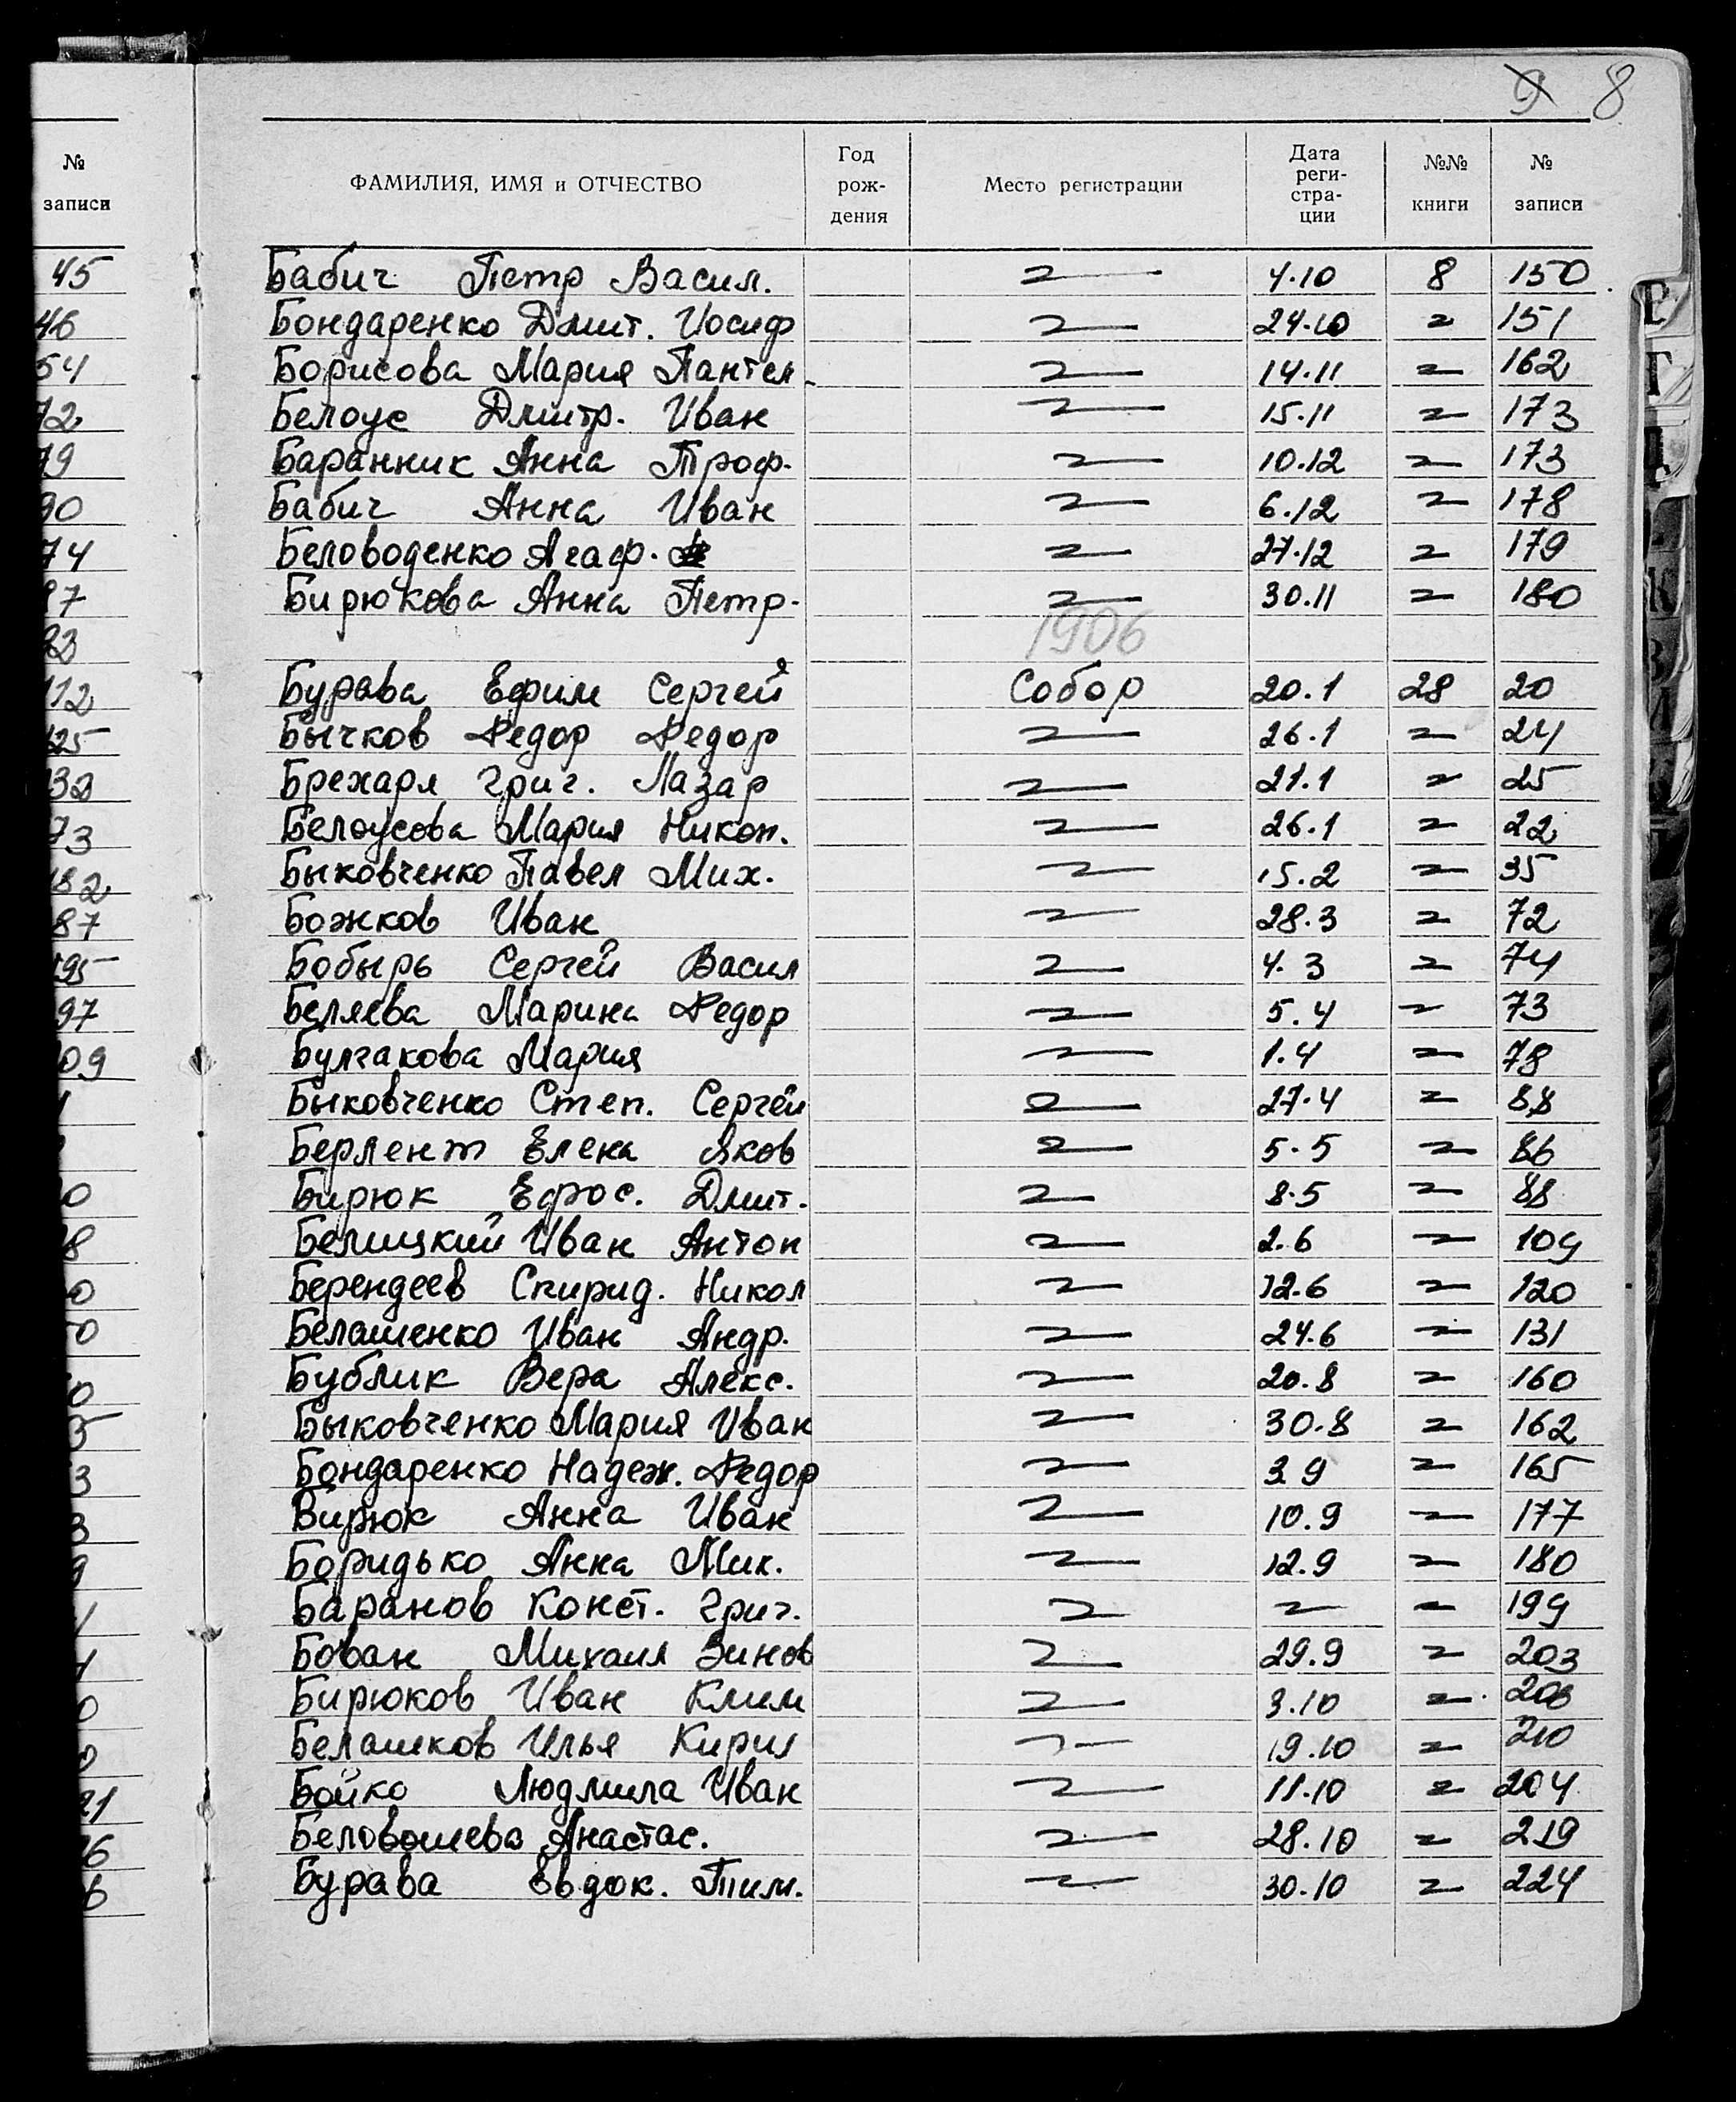 9 8
№ записи
ФАМИЛИЯ, ИМЯ и ОТЧЕСТВО Год рож-дения Место регистрации Дата реги-стра-ции №№ книги № записи
Бабич Петр Васил. 〃 4.10 8 150
Бондаренко Дмит. Иосиф 〃 24.10 〃 151
Борисова Мария Пантел. 〃 14.11 〃 162
Белоус Дмитр. Иван 〃 15.11 〃 173
Баранник Анна Троф. 〃 10.12 〃 173
Бабич Анна Иван 〃 6.12 〃 178
Беловоденко Агаф. 〃 27.12 〃 179
Бирюкова Анна Петр. 〃 30.11 〃 180
1906
Бурава Ефим Сергей Собор 20.1 28 20
Бычков Федор Федор 〃 26.1 〃 24
Брехаря Григ. Лазар 〃 21.1 〃 25
Белоусова Мария Никон. 〃 26.1 〃 22
Быковченко Павел Мих. 〃 15.2 〃 35
Божков Иван 〃 28.3 〃 72
Бобырь Сергей Васил 〃 4.3 〃 74
Беляева Марина Федор 〃 5.4 〃 73
Булгакова Мария 〃 1.4 〃 78
Быковченко Степ. Сергей 〃 27.4 〃 88
Берлент Елена Яков 〃 5.5 〃 86
Бирюк Ефрос. Дмит. 〃 8.5 〃 88
Белицкий Иван Антон 〃 2.6 〃 109
Берендеев Спирид. Никол 〃 12.6 〃 120
Белашенко Иван Андр. 〃 24.6 〃 131
Бублик Вера Алекс. 〃 20.8 〃 160
Быковченко Мария Иван 〃 30.8 〃 162
Бондаренко Надеж. Федор 〃 3.9 〃 165
Бирюк Анна Иван 〃 10.9 〃 177
Боридько Анна Мик. 〃 12.9 〃 180
Баранов Конст. Григ. 〃 〃 〃 199
Бован Михаил Зинов 〃 29.9 〃 203
Бирюков Иван Клим 〃 3.10 〃 208
Белашков Илья Кирил 〃 19.10 〃 210
Бойко Людмила Иван 〃 11.10 〃 204
Беловошева Анастас. 〃 28.10 〃 219
Бурава Евдок. Тим. 〃 30.10 〃 224